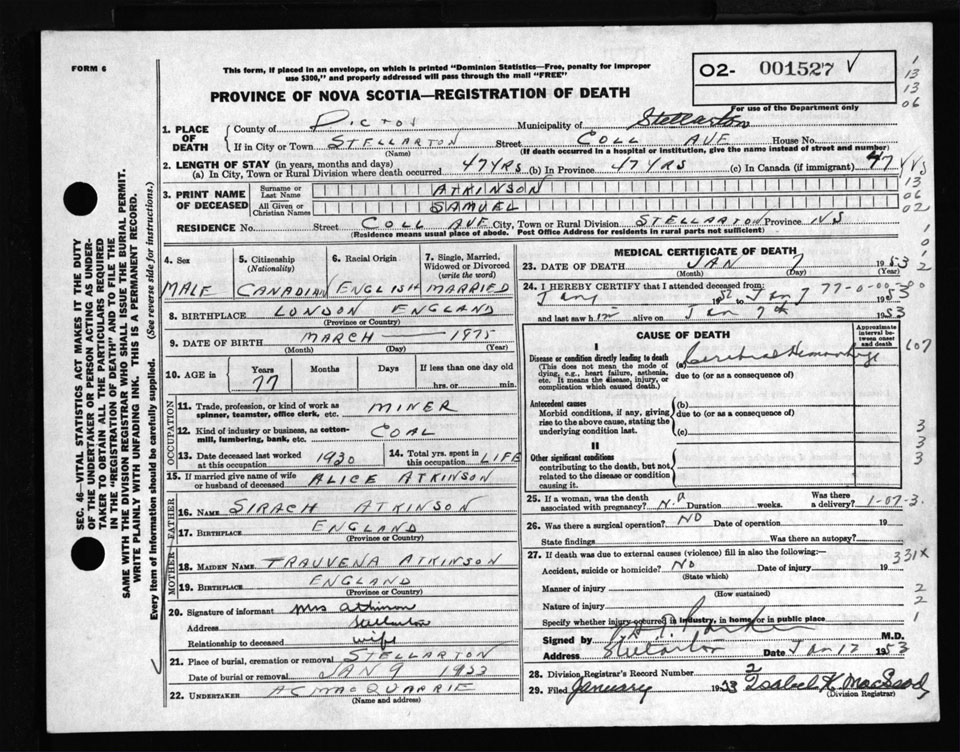 FORM 6
This form, if placed in an envelope, on which is printed "Dominion Statistics—Free, penalty for improper
use $300," and properly addressed will pass through the mail "FREE"
02- 001527 V
For use of the Department only
PROVINCE OF NOVA SCOTIA—REGISTRATION OF DEATH
1. PLACE OF DEATH { County of PICTOU Municipality of Stellarton
If in City or Town STELLARTON Street COLL AVE House No.
(Name) (If death occurred in a hospital or institution, give the name instead of street and number)
2. LENGTH OF STAY (in years, months and days)
(a) In City, Town or Rural Division where death occurred 47 YRS (b) In Province 47 YRS (c) In Canada (if immigrant) 47 YRS
3. PRINT NAME OF DECEASED { Surname or Last Name ATKINSON
All Given or Christian Names SAMUEL
RESIDENCE No. Street COLL AVE City, Town or Rural Division STELLARTON Province NS
(Residence means usual place of abode. Post Office Address for residents in rural parts not sufficient)
4. Sex MALE
5. Citizenship (Nationality) CANADIAN
6. Racial Origin ENGLISH
7. Single, Married, Widowed or Divorced (write the word) MARRIED
8. BIRTHPLACE LONDON ENGLAND
(Province or Country)
9. DATE OF BIRTH MARCH 1975
(Month) (Day) (Year)
10. AGE in Years 77 Months Days If less than one day old
hrs. or min.
OCCUPATION
11. Trade, profession, or kind of work as
spinner, teamster, office clerk, etc. MINER
12. Kind of industry or business, as cotton-
mill, lumbering, bank, etc. COAL
13. Date deceased last worked
at this occupation 1930
14. Total yrs. spent in
this occupation LIFE
15. If married give name of wife
or husband of deceased ALICE ATKINSON
FATHER
16. NAME SIRACH ATKINSON
17. BIRTHPLACE ENGLAND
(Province or Country)
MOTHER
18. MAIDEN NAME TRAVVENA ATKINSON
19. BIRTHPLACE ENGLAND
(Province or Country)
20. Signature of informant Mrs Atkinson
Address Stellarton
Relationship to deceased wife
21. Place of burial, cremation or removal STELLARTON
Date of burial or removal JAN 9 1953
22. UNDERTAKER AC MACQUARRIE
(Name and address)
MEDICAL CERTIFICATE OF DEATH
23. DATE OF DEATH JAN 7 1953
(Month) (Day) (Year)
24. I HEREBY CERTIFY that I attended deceased from:
Jany 1952 to Jan 7 1953
77-0-00-00
and last saw h im alive on Jan 7th 1953
CAUSE OF DEATH
Approximate interval between onset and death
I
Disease or condition directly leading to death
(This does not mean the mode of
dying, e.g., heart failure, asthenia,
etc. It means the disease, injury, or
complication which caused death.)
(a) Cerebral Hemorrhage
due to (or as a consequence of)
Antecedent causes
Morbid conditions, if any, giving
rise to the above cause, stating the
underlying condition last.
(b)
due to (or as a consequence of)
(c)
II
Other significant conditions
contributing to the death, but not
related to the disease or condition
causing it.
25. If a woman, was the death
associated with pregnancy? N.a Duration weeks. Was there
a delivery? 1-07-3.
26. Was there a surgical operation? NO Date of operation 19
State findings Was there an autopsy?
27. If death was due to external causes (violence) fill in also the following:—
Accident, suicide or homicide? No Date of injury 19
(State which)
331X
Manner of injury
(How sustained)
Nature of injury
Specify whether injury occurred in industry, in home, or in public place
Signed by Parker M.D.
Address Stellarton Date Jan 12 1953
28. Division Registrar's Record Number 2
29. Filed January 1953 Isabel K. MacLeod
(Division Registrar)
1
13
13
06
13
06
02
1
0
1
2
607
3
3
3
2
2
1
SEC. 46—VITAL STATISTICS ACT MAKES IT THE DUTY
OF THE UNDERTAKER OR PERSON ACTING AS UNDER-
TAKER TO OBTAIN ALL THE PARTICULARS REQUIRED
IN THE "REGISTRATION OF DEATH" AND TO FILE THE
SAME WITH THE DIVISION REGISTRAR WHO SHALL ISSUE THE BURIAL PERMIT.
WRITE PLAINLY WITH UNFADING INK. THIS IS A PERMANENT RECORD.
Every item of information should be carefully supplied. (See reverse side for instructions.)